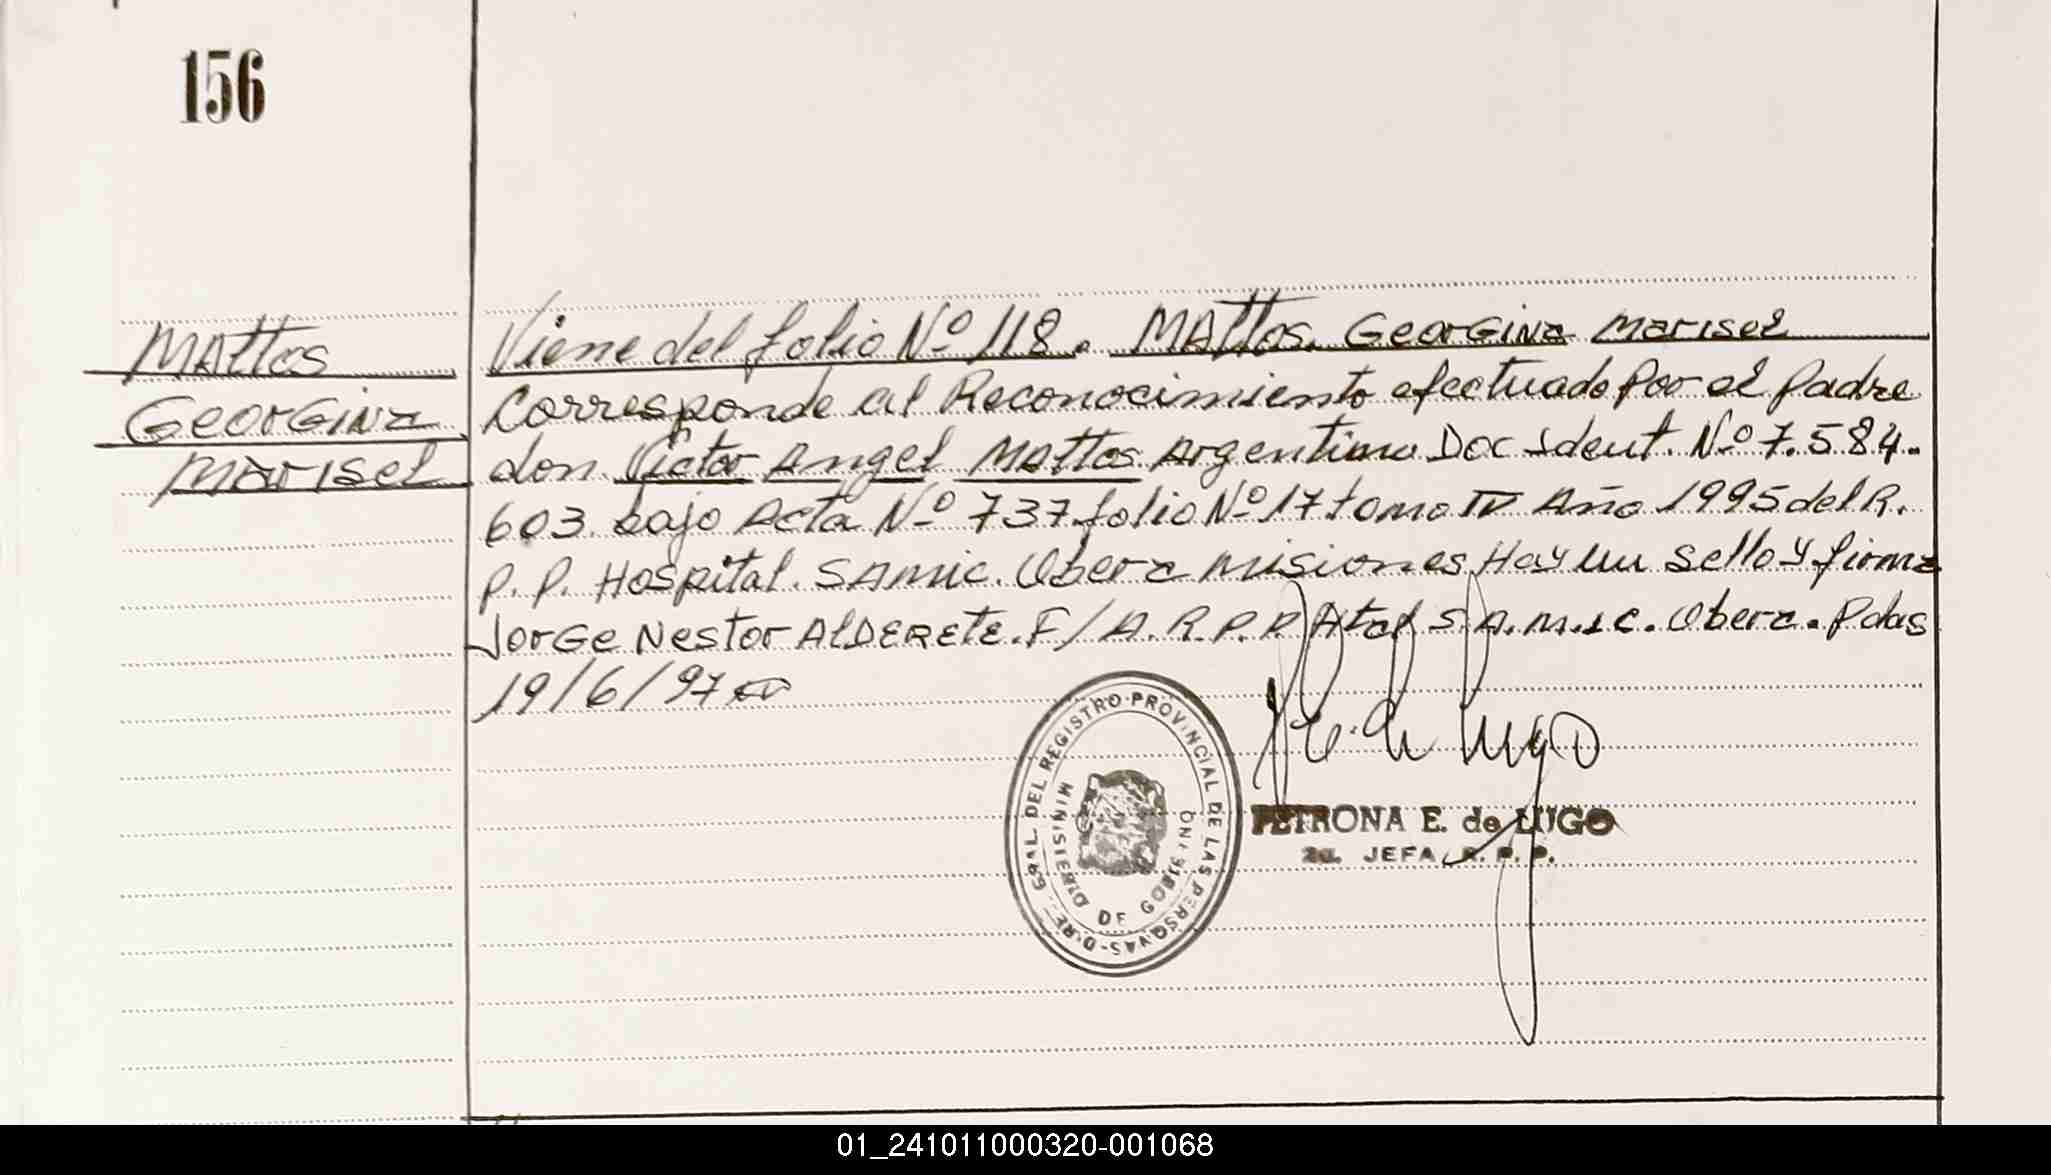 156
MAttos
GeorGina
Marisel
Viene del folio Nº 118. MAttos. GeorGina Marisel
Corresponde al Reconocimiento efectuado Por el Padre
don Victor Angel Mattos Argentino Doc Ident. Nº 7.584.
603. bajo Acta Nº 737 folio Nº 17 tomo IV Año 1995 del R.
P. P. Hospital. SAmic. Obera Misiones Hay un sello y firma
JorGe Nestor AlDEREtE. F/ A. R. P. P. Htal S.A.M.I.C. Obera. Pdas
19/6/97
GRAL. DEL REGISTRO PROVINCIAL DE LAS PERSONAS - DIRE
MINISTERIO DE GOBIERNO
PETRONA E. de LUGO
2a. JEFA R. P. P.
01_241011000320-001068